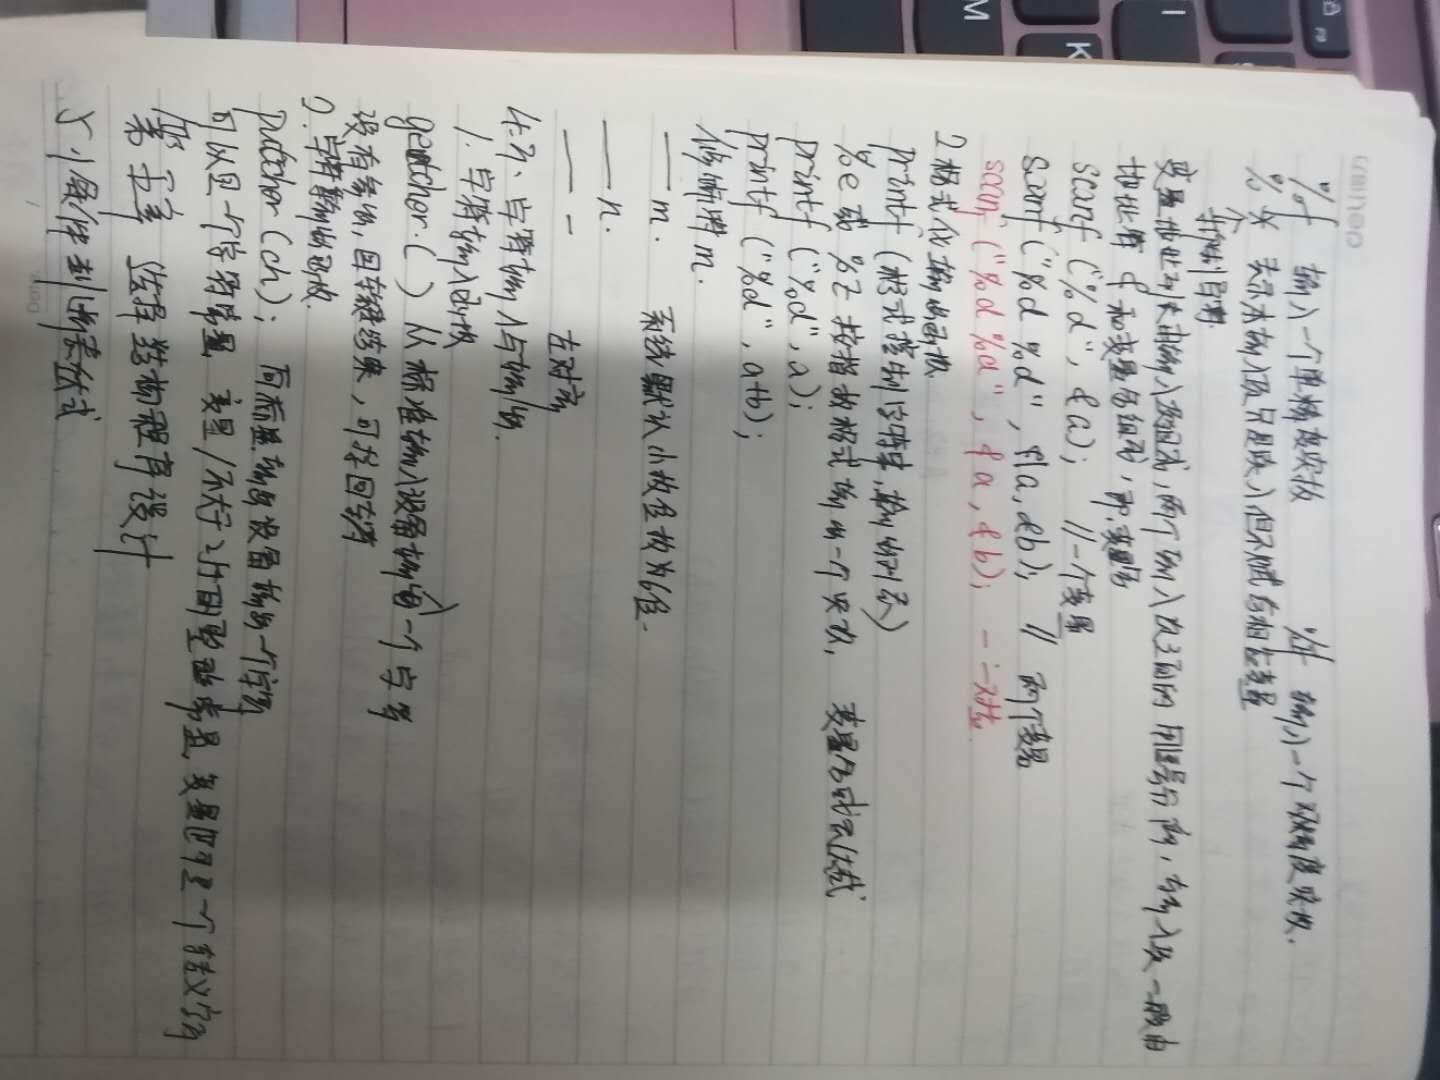 %f 输入一个单精度实数 %lf 输入一个双精度实数.
%* 表示本输入项只是映入但不赋给相应变量
变量地址列表由输入项组成,两个输入项之间用逗号分隔,输入项一般由
地址符&和变量名组成,即&变量名
scanf ("%d", &a); //一个变量
scanf ("%d %d", &a, &b); // 两个变量
scanf ("%d %d", &a, &b); 一一对应
2.格式化输出函数
printf (格式控制字符串,输出列表)
%e 或 %E 按指数格式输出一个实数, 变量名或表达式
printf ("%d", a);
printf ("%d", a+b);
修饰符m.
—— m. 系统默认小数位数为6位.
—— n.
—— - 左对齐
4.3、字符输入与输出.
1.字符输入函数
getchar ( ) 从标准输入设备输入一个字符
没有参数,回车键结束,可好回车符
2.字符输出函数
putchar (ch); 向标准输出设备输出一个字符
可以是一个字符常量 变量/不大于255的整型常量 变量即可是一个转义字符
第五章 选择结构程序设计
5.1条件判断表达式